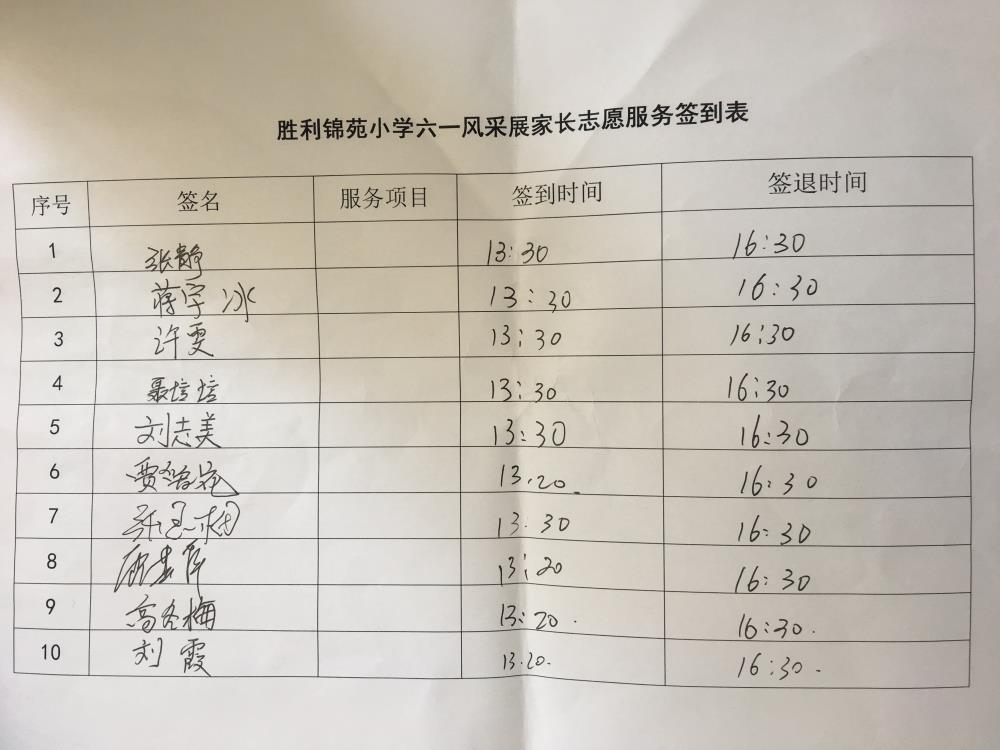 胜利锦苑小学六一风采展家长志愿服务签到表
序号 签名 服务项目 签到时间 签退时间
1 张静 13:30 16:30
2 蒋宇冰 13:30 16:30
3 许雯 13:30 16:30
4 聂培培 13:30 16:30
5 刘志美 13:30 16:30
6 13.20 16:30
7 13.30 16:30
8 13:20 16:30
9 高冬梅 13:20. 16:30.
10 刘霞 13.20. 16:30.